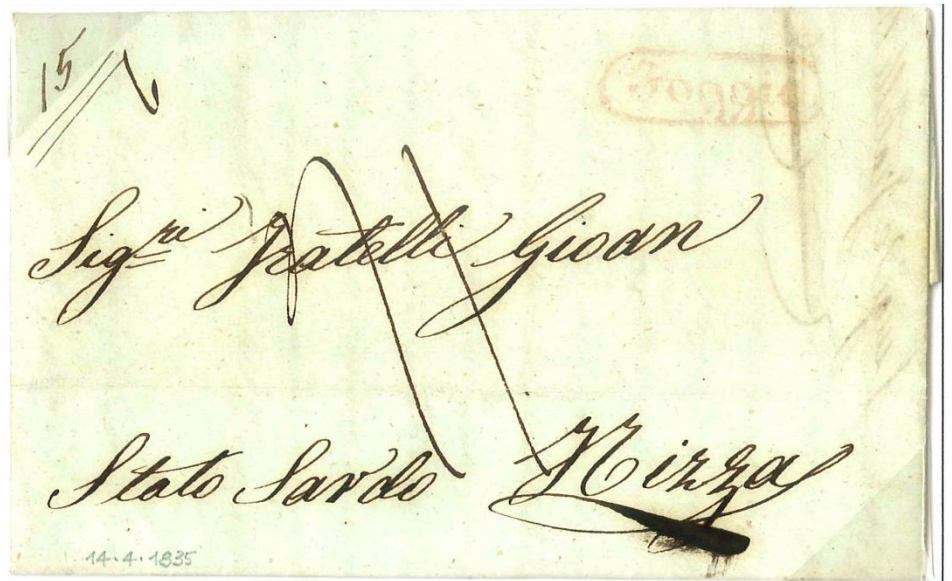 15
Foggia
Sig.ri Fratelli Gioan
Stato Sardo Nizza
14.4.1835